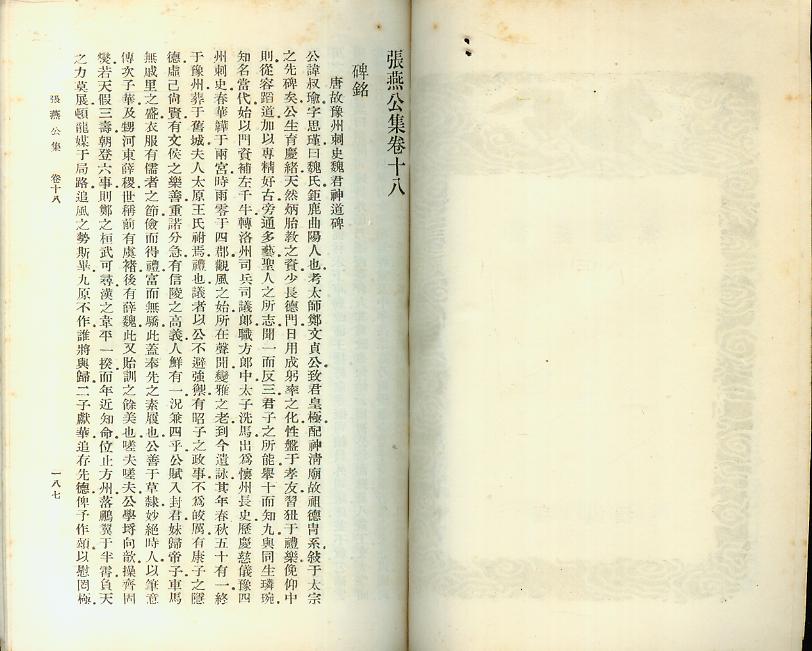 張燕公集卷十八
碑銘
唐故豫州刺史魏君神道碑
公諱叔瑜字思瑾曰魏氏鉅鹿曲陽人也考太師鄭文貞公致君皇極配神清廟故祖德冑系敍于太宗
之先碑矣公生育慶緒天然炳胎教之資少長德門日用成躬率之化性盤于孝友習狃于禮樂俛仰中
則從容蹈道加以專精好古旁通多藝聖人之所志聞一而反三君子之所能舉十而知九與同生璘琬
知名當代始以門資補左千牛轉洛州司兵司議郎職方郎中太子洗馬出爲懷州長史歷慶慈儀豫四
州刺史春華韡于兩宮時雨零于四郡觀風之始所在聲聞變雅之老到今遺詠其年春秋五十有一終
于豫州葬于舊城夫人太原王氏祔焉禮也議者以公不避強禦有昭子之政事不爲皎厲有康子之隱
德虛己尙賢有文侯之樂善重諾分急有信陵之高義人鮮有一況兼四乎公賦入封君妹歸帝子車馬
無戚里之盛衣服有儒者之節儉而得禮富而無驕此蓋奉先之素履也公善于草隸妙絕時人以筆意
傳次子華及甥河東薛稷世稱前有虞褚後有薛魏此又貽訓之餘美也嗟夫嗟夫公學埒向歆操齊固
爕若天假三壽朝登六事則鄭之桓武可尋漢之韋平一揆而年近知命位止方州落鵬翼于半霄負天
之力莫展頓龍媒于局路追風之勢斯畢九原不作誰將與歸二子獻華追存先德俾予作頌以慰罔極
張燕公集 卷十八
一八七